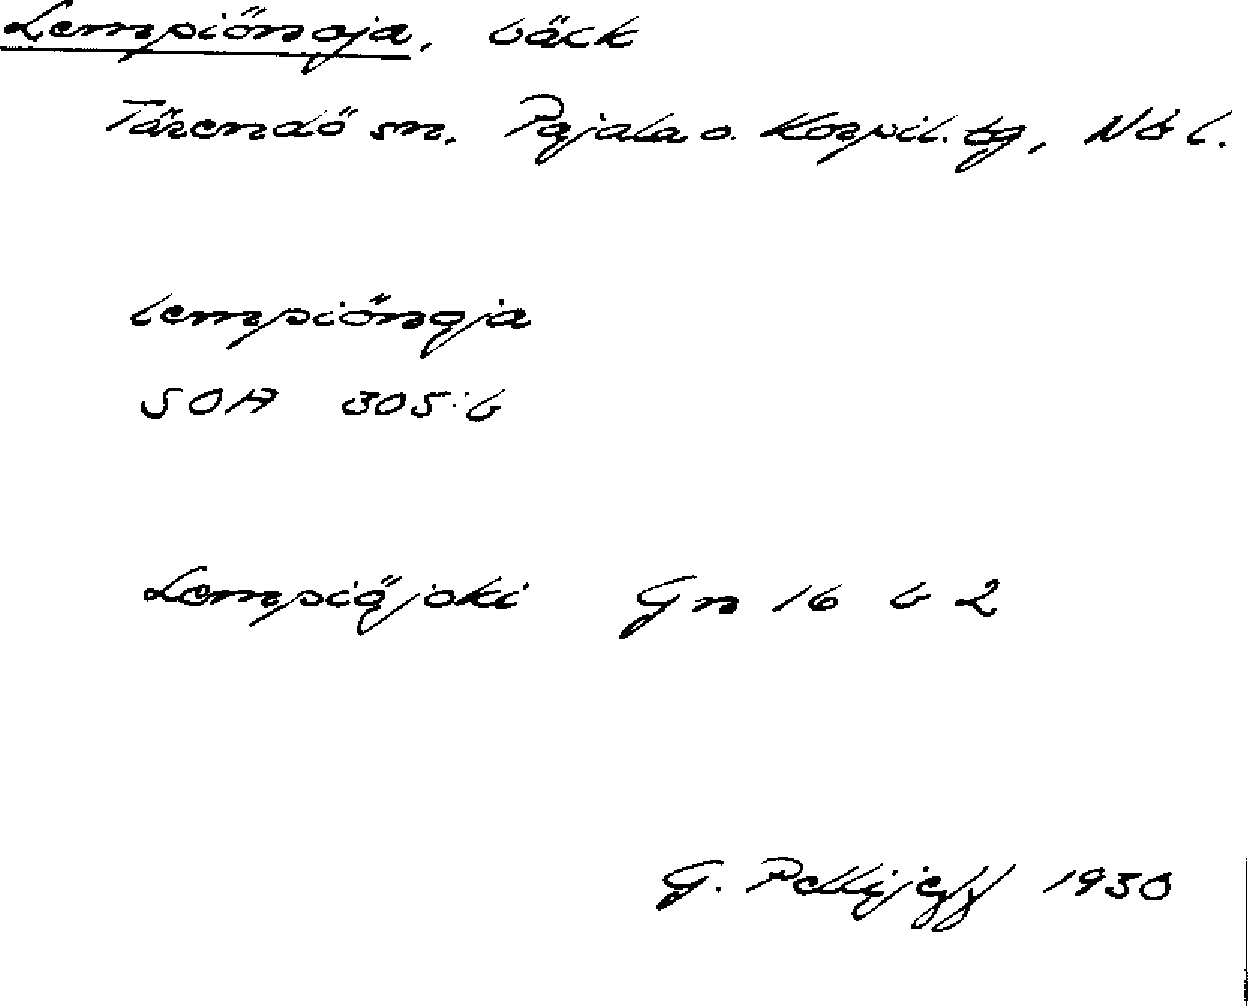 Lempiönoja, bäck
Tärendö sn, Pajala o. Korpil. tg, Nb l.
lempiönoja
SOA 305:6
Lempiöjoki Gn 16 b 2
G. Pellijeff 1950